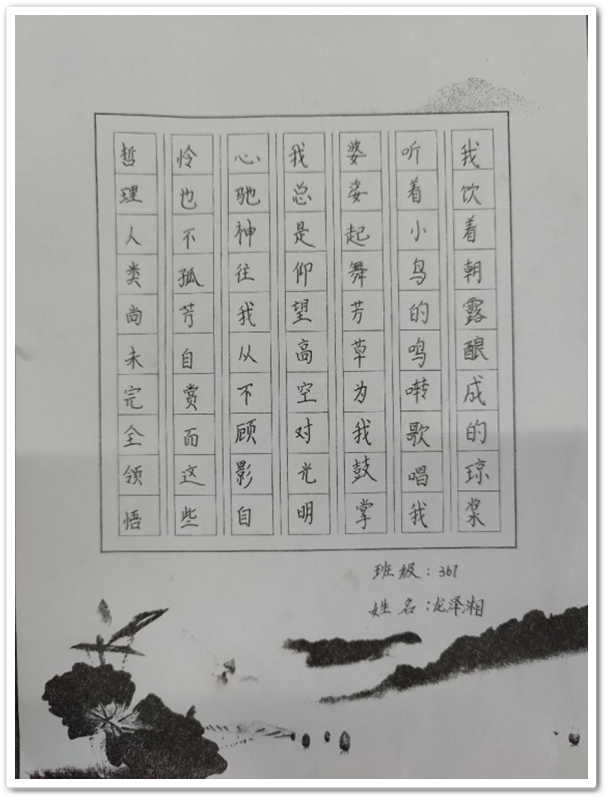 我饮着朝露酿成的琼浆
听着小鸟的鸣啭歌唱我
婆娑起舞芳草为我鼓掌
我总是仰望高空对光明
心驰神往我从不顾影自
怜也不孤芳自赏而这些
哲理人类尚未完全领悟
班级：361
姓名：龙泽湘